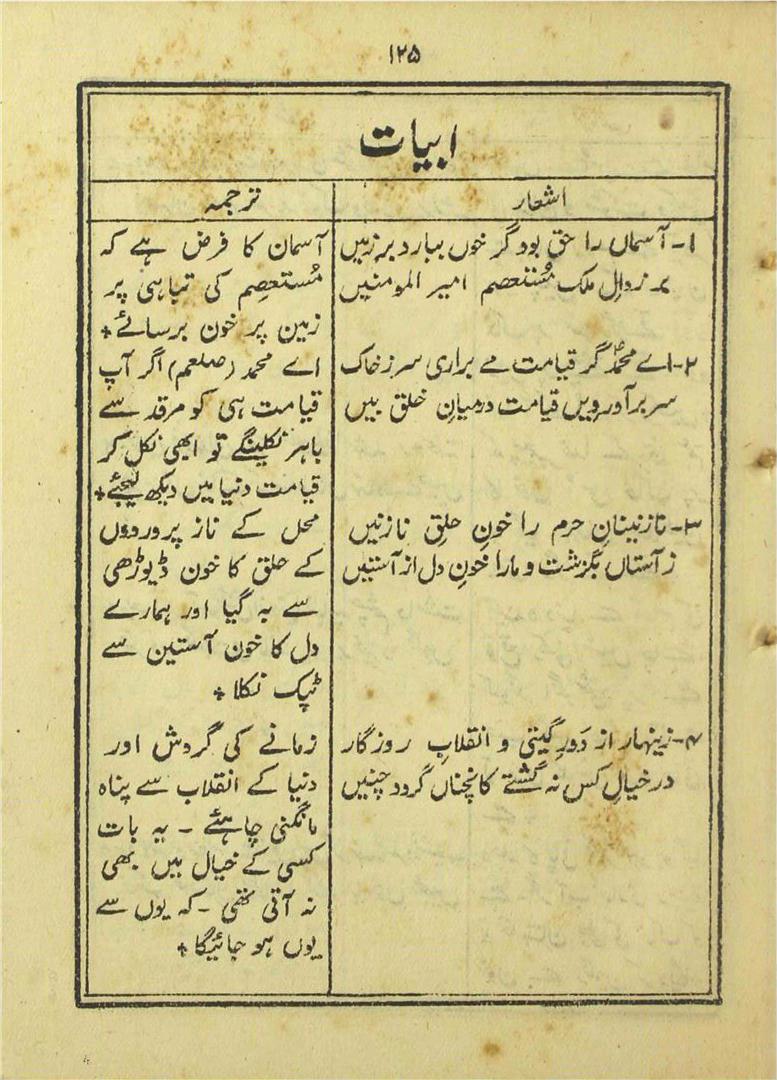 ۱۲۵
ابیات
اشعار
ترجمہ
۱۔ آسماں را حق بود گر خوں ببارد بر زمیں
بر زوالِ ملک مُستعصم امیر المومنیں
آسمان کا فرض ہے کہ
مُستعصِم کی تباہی پر
زمین پر خون برسائے +
۲۔ اے محمدؐ گر قیامت مے براری سر ز خاک
سر برآور ویں قیامت درمیانِ خلق بیں
اے محمد (صلعم) اگر آپ
قیامت ہی کو مرقد سے
باہر نکلینگے تو ابھی نکل کر
قیامت دنیا میں دیکھ لیجئے +
۳۔ نازنینانِ حرم را خونِ حلقِ نازنیں
ز آستاں بگزشت و مارا خونِ دل از آستیں
محل کے ناز پروردوں
کے حلق کا خون ڈیوڑھی
سے بہ گیا اور ہمارے
دل کا خون آستین سے
ٹپک نکلا +
۴۔ زینہار از دَورِ گیتی و انقلابِ روزگار
در خیالِ کس نہ گشتے کانچناں گردد چنیں
زمانے کی گردش اور
دنیا کے انقلاب سے پناہ
مانگنی چاہئے ۔ یہ بات
کسی کے خیال میں بھی
نہ آتی تھی ۔ کہ یوں سے
یوں ہو جائیگا +